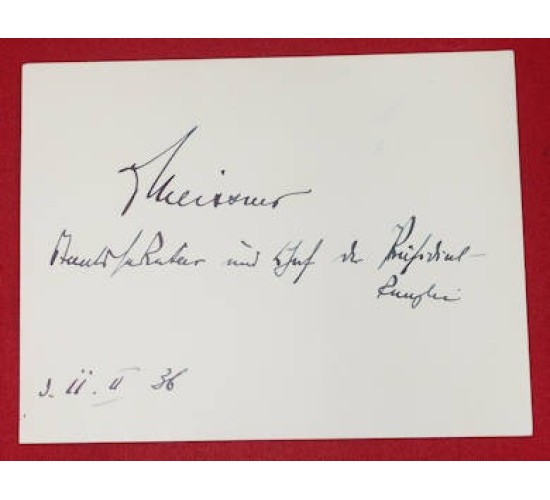 Meissner
Staatssekretär und Chef der Präsidial-
kanzlei
d. 11. II 36